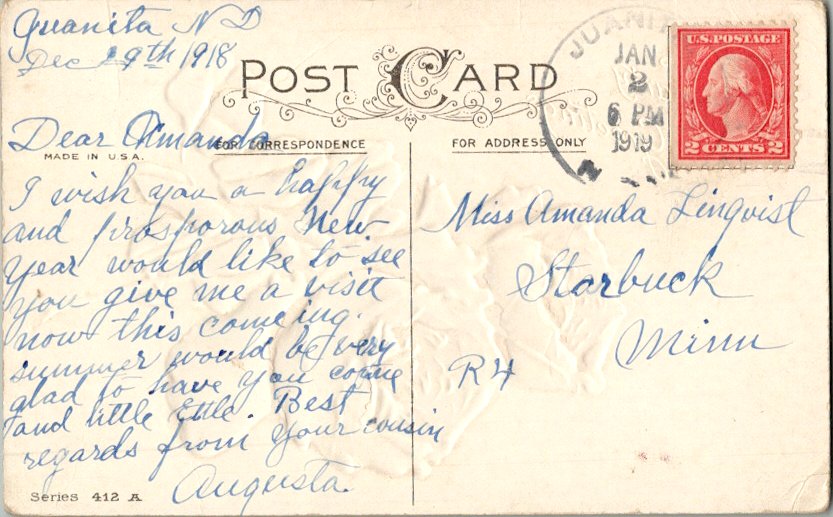 Juanita ND
Dec 29th 1918
POST CARD
Dear Amanda
FOR CORRESPONDENCE
MADE IN U.S.A.
I wish you a happy
and prosporous New
Year would like to see
you give me a visit
now this comeing.
summer would be very
glad to have you come
and little Ettle. Best
regards from your cousin
Augusta.
Series 412 A
FOR ADDRESS ONLY
Miss Amanda Linqvist
Starbuck
Minn
R4
JUANI
JAN
2
6 PM
1919
N
U.S. POSTAGE
2 CENTS 2